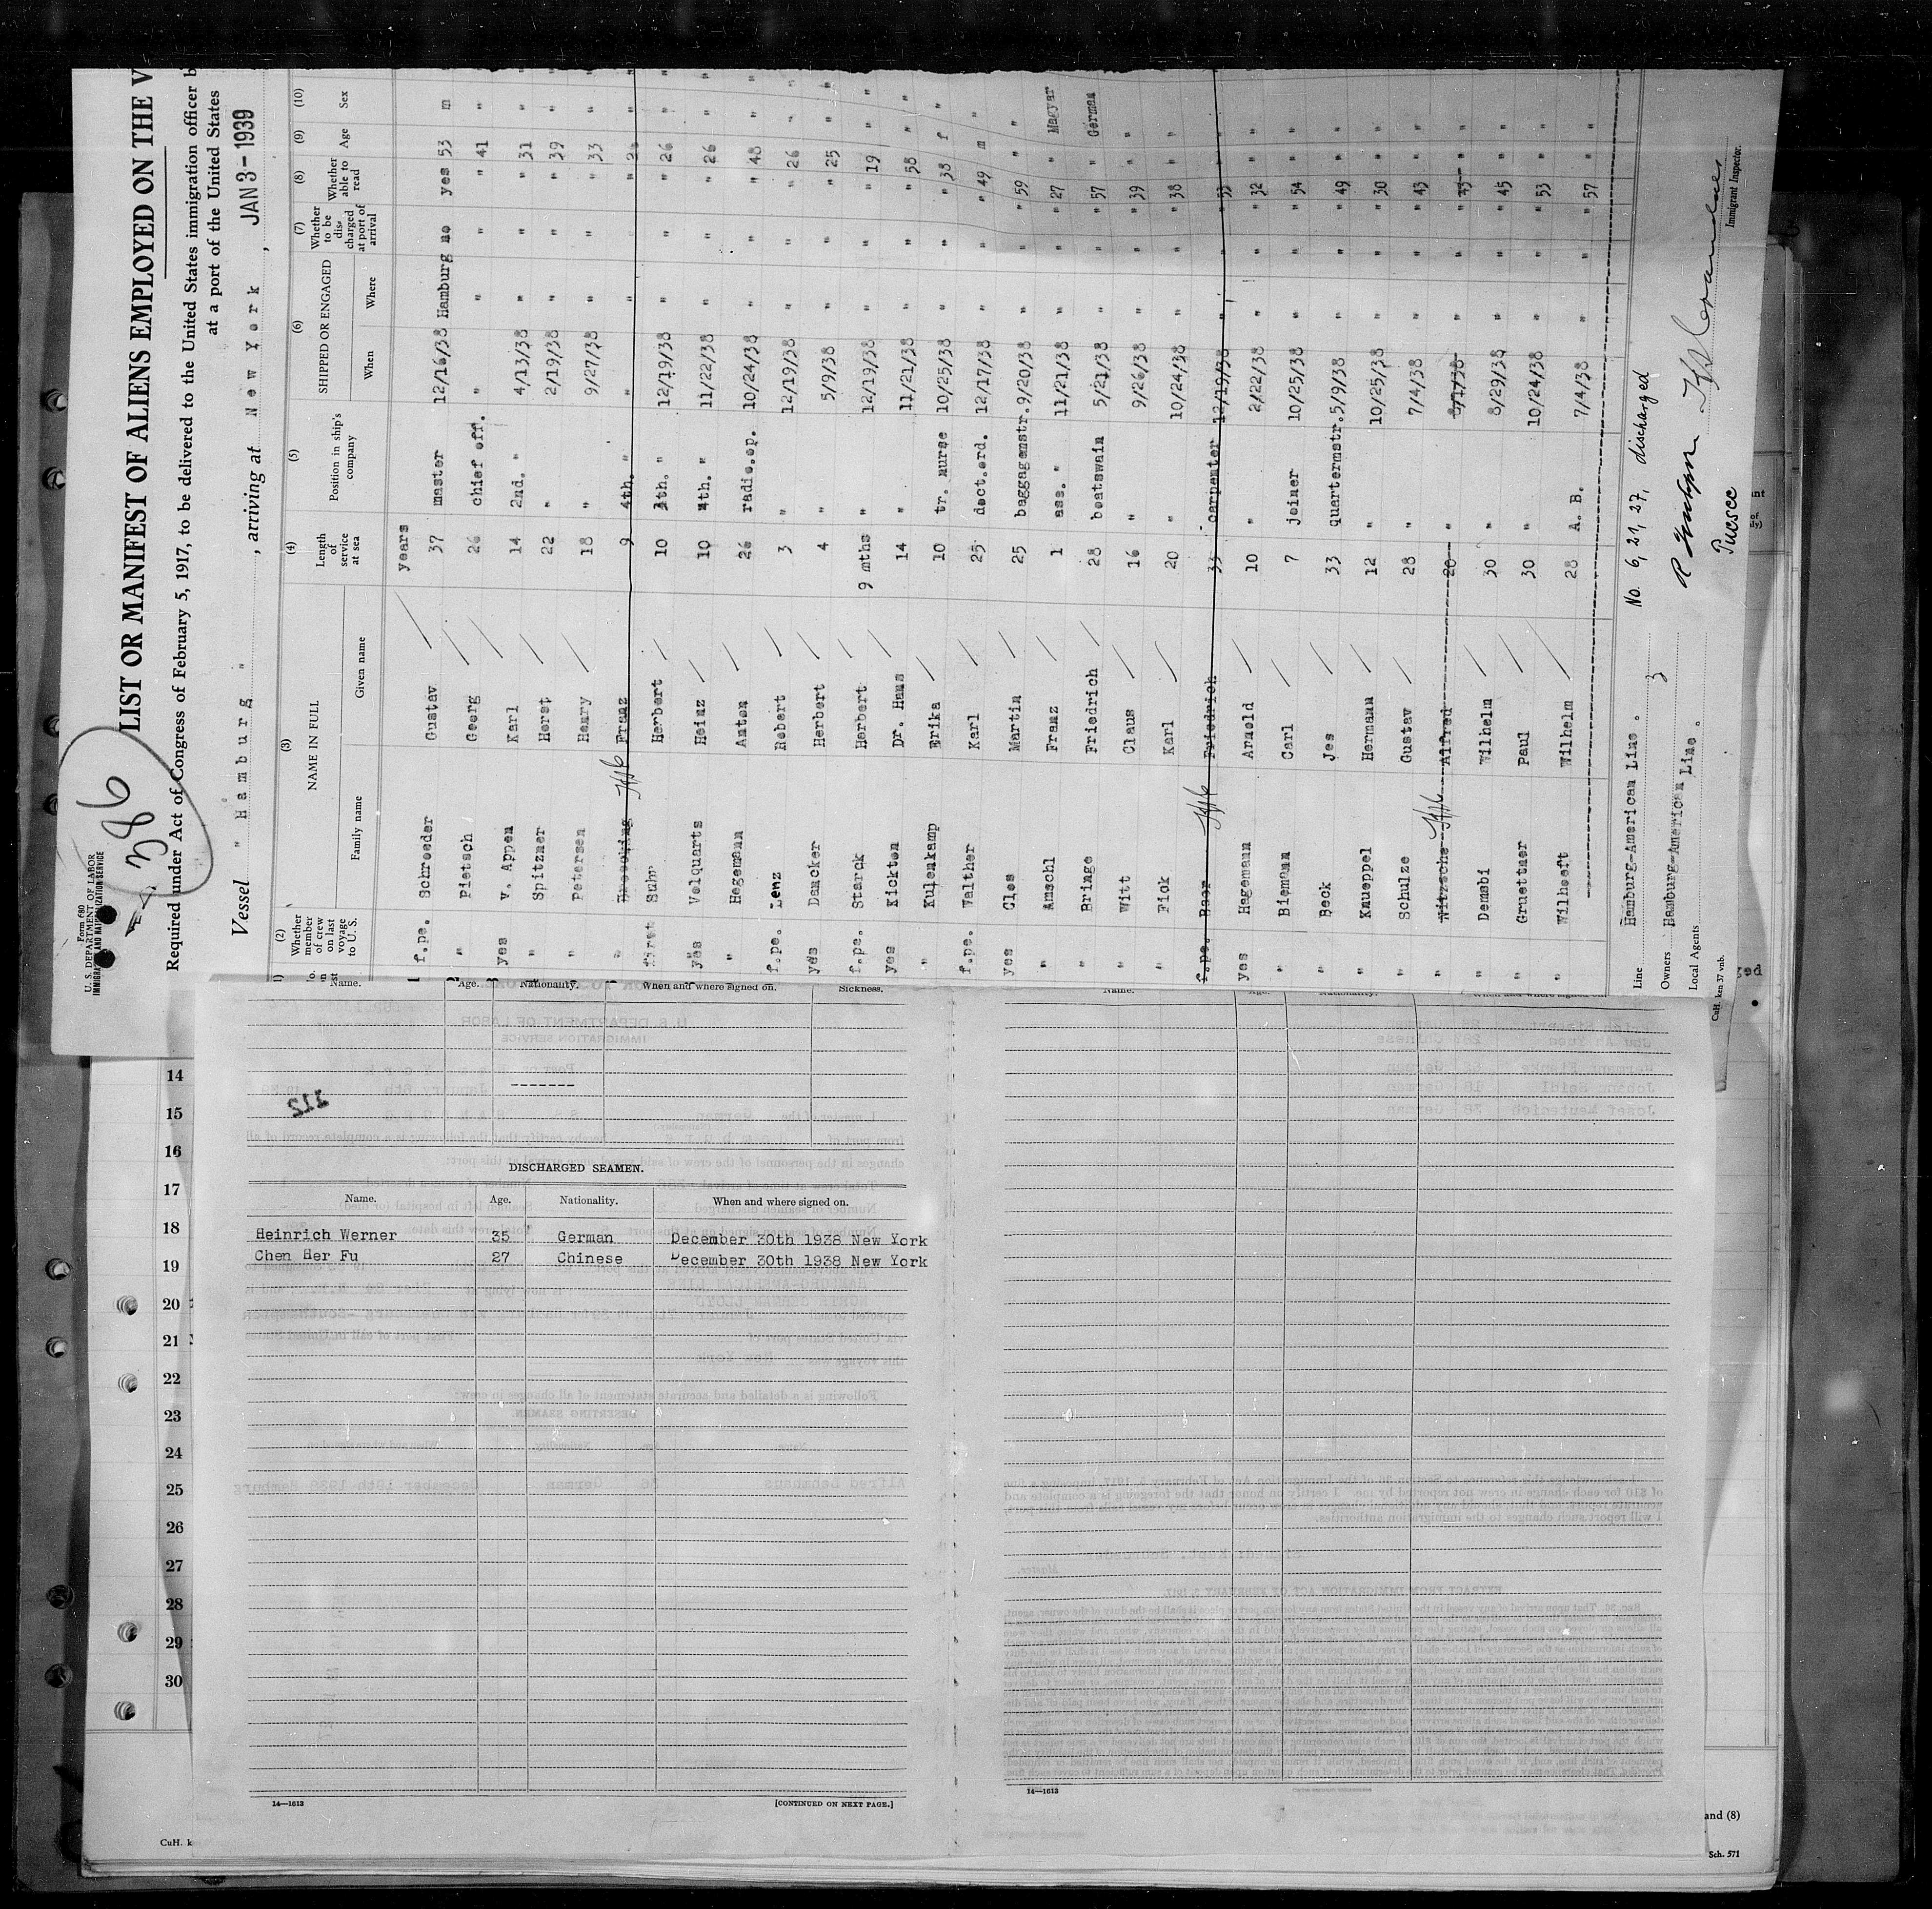 Form 680
U. S. DEPARTMENT OF LABOR
IMMIGRATION AND NATURALIZATION SERVICE
386
LIST OR MANIFEST OF ALIENS EMPLOYED ON THE V
Required under Act of Congress of February 5, 1917, to be delivered to the United States immigration officer b
at a port of the United States
Vessel " Hamburg " , arriving at New York , JAN 3-1939
(2) (3) (4) (5) (6) (7) (8) (9) (10)
Whether member of crew on last voyage to U. S. NAME IN FULL Length of service at sea Position in ship's company SHIPPED OR ENGAGED Whether to be discharged at port of arrival Whether able to read Age Sex
Family name Given name When Where
years
f.pe. Schroeder Gustav 37 master 12/16/38 Hamburg no yes 53 m
" Pietsch Georg 26 chief off. " " " " 41 "
yes v. Appen Karl 14 2nd. " 4/13/38 " " " 31 "
" Spitzner Horst 22 " 2/19/38 " " " 39 "
" Petersen Henry 18 " 9/27/38 " " " 33 "
" Franz 9 4th. " " " "
first Suhr Herbert 10 4th. " 12/19/38 " " 26 "
yes Velquarts Heinz 10 4th. " 11/22/38 " " " 26 "
" Hegemann Anton 26 radio.op. 10/24/38 " " " 48 "
f.pe. Lenz Robert 3 " 12/19/38 " " " 26 "
yes Dancker Herbert 4 " 5/9/38 " " " 25 "
f.pe. Starck Herbert 9 mths " 12/19/38 " " " 19 "
yes Kickton Dr. Hans 14 " 11/21/38 " " " 58 "
" Kulenkamp Erika 10 tr. nurse 10/25/38 " " " 38 f
f.pe. Walther Karl 25 doct.ord. 12/17/38 " " " 49 m
yes Clos Martin 25 baggagemstr. 9/20/38 " " " 59 "
" Amschl Franz 1 ass. " 11/21/38 " " " 27 " Magyar
" Bringe Friedrich 28 boatswain 5/21/38 " " " 57 " German
" Witt Claus 16 " 9/26/38 " " " 39 " "
" Fick Karl 20 " 10/24/38 " " " 38 " "
f.pe. Baer Friedrich 33 carpenter 12/19/38 " " " 53 " "
yes Hagemann Arnold 10 " 2/22/38 " " " 32 " "
" Biemann Carl 7 joiner 10/25/38 " " " 34 " "
" Beck Jes 33 quartermstr. 5/9/38 " " " 49 " "
" Knueppel Hermann 12 " 10/25/38 " " " 30 " "
" Schulze Gustav 28 " 7/4/38 " " " 43 " "
" Nitzsche Alfred 20 " " " " "
" Dembi Wilhelm 30 " 8/29/38 " " " 45 " "
" Gruettner Paul 30 " 10/24/38 " " " 53 " "
" Wilhoeft Wilhelm 28 A. B. 7/4/38 " " " 57 " "
Line Hamburg-American Line. No. 6, 21, 27, discharged
Owners Hamburg-American Line. 3
Local Agents
Immigrant Inspector.
CuH. ken 37 vnb.
Name. Age. Nationality. When and where signed on. Sickness.
DISCHARGED SEAMEN.
Name. Age. Nationality. When and where signed on.
Heinrich Werner 35 German December 30th 1938 New York
Chen Her Fu 27 Chinese December 30th 1938 New York
14—1613 [CONTINUED ON NEXT PAGE.]
Name. Age. Nationality. When and where signed on.
14—1613
14
15
16
17
18
19
20
21
22
23
24
25
26
27
28
29
30
CuH. k
and (8)
Sch. 571